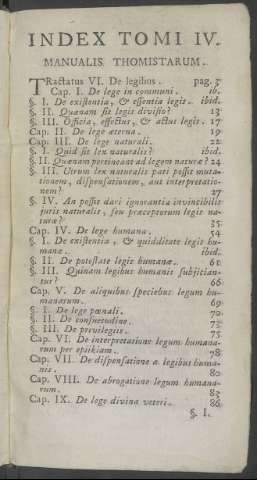 INDEX TOMI IV.
MANUALIS THOMISTARUM.
TRactatus VI. De legibus. pag. 3
Cap. I. De lege in communi. ib.
§. I. De existentia, & essentia legis. ibid.
§. II. Quænam sit legis divisio? 13
§. III. Officia, effectus, & actus legis. 17
Cap. II. De lege æterna. 19
Cap. III. De lege naturali. 22
§. I. Quid sit lex naturalis? ibid.
§. II. Quænam pertineant ad legem naturæ? 24
§. III. Utrum lex naturalis pati possit muta-
tionem, dispensationem, aut interpretatio-
nem? 27
§. IV. An possit dari ignorantia invincibilis
juris naturalis, seu præceptorum legis na-
turæ? 35
Cap. IV. De lege humana. 54
§. I. De existentia, & quidditate legis hu-
manæ. ibid.
§. II. De potestate legis humanæ. 60
§. III. Quinam legibus humanis subjician-
tur? 66
Cap. V. De aliquibus speciebus legum hu-
manarum. 69
§. I. De lege pœnali. 70
§. II. De consuetudine. 73
§. III. De privilegiis. 75
Cap. VI. De interpretatione legum humana-
rum per epiikiam. 78
Cap. VII. De dispensatione a legibus huma-
nis. 80
Cap. VIII. De abrogatione legum humana-
rum. 83
Cap. IX. De lege divina veteri. 86
§. I.